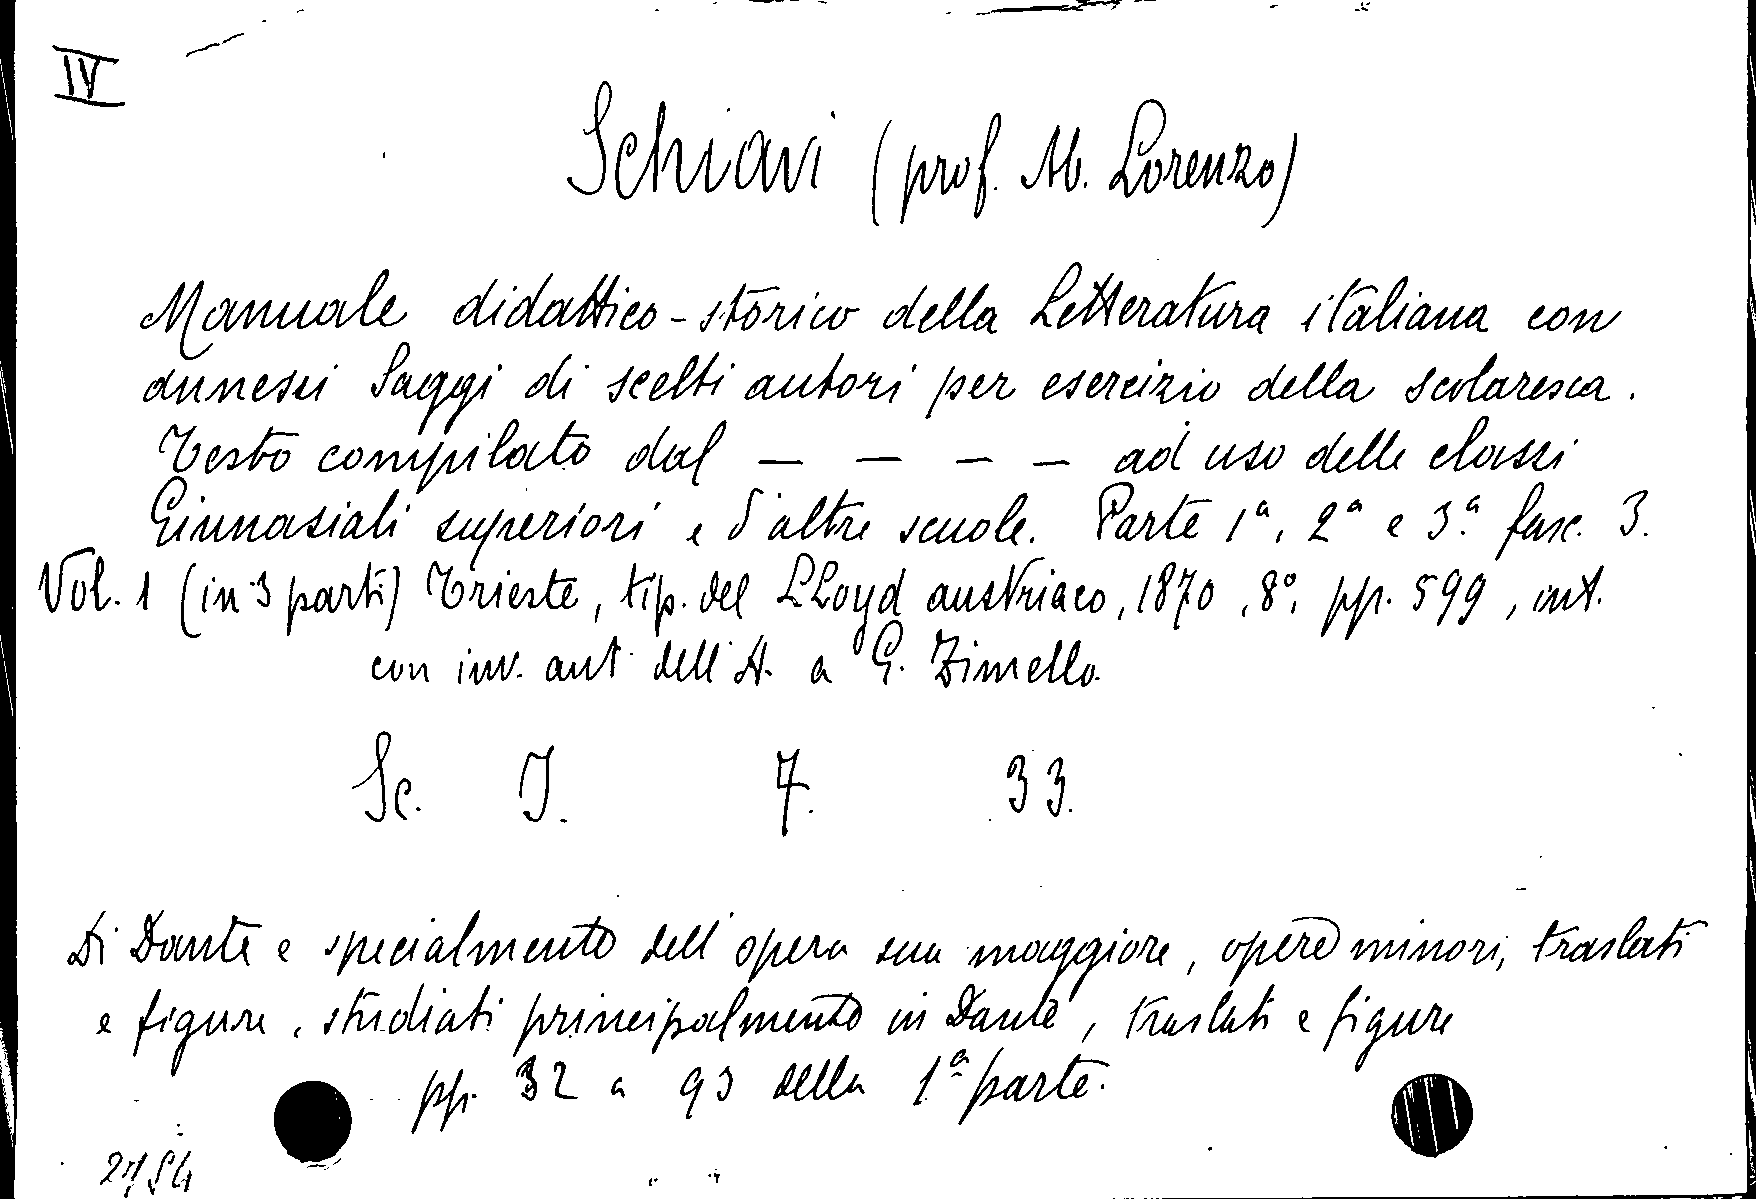 IV
Schiavi (prof. Ab. Lorenzo)
Manuale didattico-storico della Letteratura italiana con
annessi Saggi di scelti autori per esercizio della scolaresca.
Testo compilato dal — — — — ad uso delle classi
Ginnasiali superiori e d'altre scuole. Parte 1ª, 2ª e 3ª fasc. 3.
Vol. 1 (in 3 parti) Trieste, tip. del LLoyd austriaco, 1870, 8°, pp. 599, int.
con inv. aut. dell'A. a G. Zimello.
Sc. I. 7. 33.
Di Dante e specialmente dell'opera sua maggiore, opere minori, traslati
e figure, studiati principalmente in Dante, traslati e figure
pp. 32 a 93 della 1ª parte.